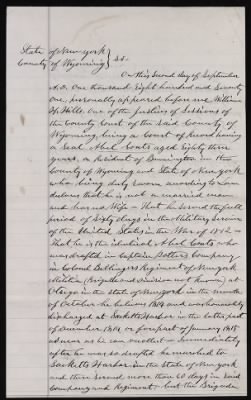 State of New York
County of Wyoming } SS.
On this Second day of September
A.D. One thousand Eight hundred and Seventy
One, personally appeared before me William
H. Mills. One of the Justices of Sessions of
the County Court of the said County of
Wyoming, being a Court of Record having
a Seal Abel Coats aged Eighty three
years, a Resident of Bennington in the
County of Wyoming and State of New York
who being duly sworn according to law
declares that he is not a married man
and has no Wife = That he served the full
period of Sixty days in the Military Service
of the United States in the War of 1812 =
That he is the identical Abel Coats who
was drafted in Captain Company
in Colonel Bellingers Regiment of New York
Militia (Brigade and division not known) at
Otsego in the State of New York in the month
of October he believes 1814 and was honorably
discharged at Sacketts Harbor in the latter part
of December 1814 or forepart of January 1815
as near as he can recollect = Immediately
after he was so drafted he marched to
Sacketts Harbor in the State of New York
and there served more than 60 days in said
Company and Regiment = but the Brigade